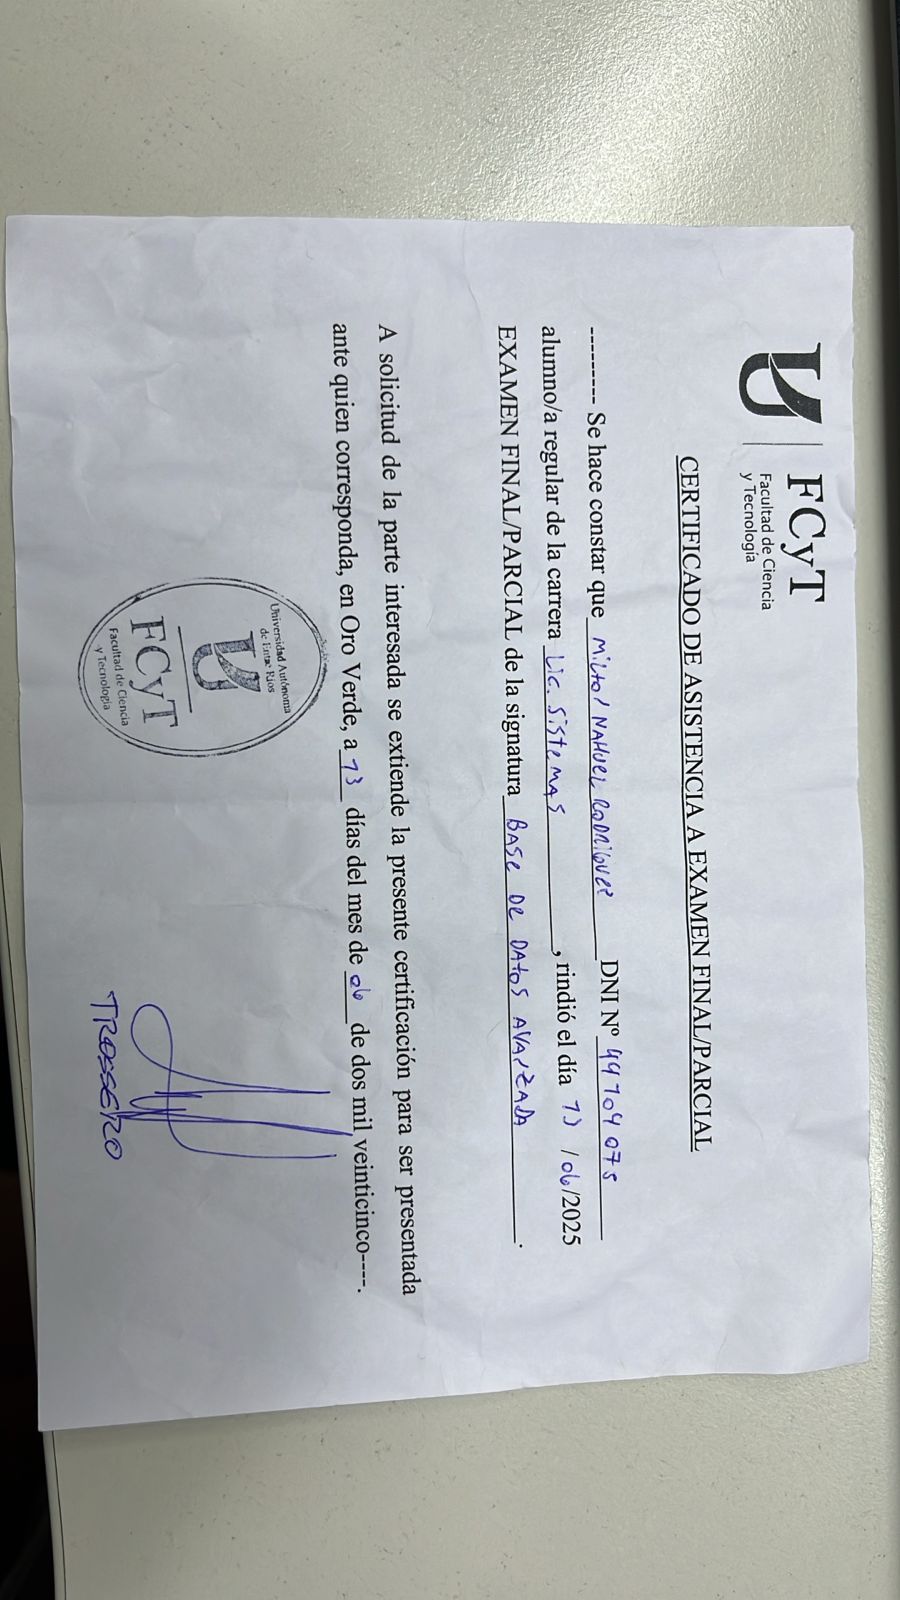 FCyT
Facultad de Ciencia
y Tecnología
CERTIFICADO DE ASISTENCIA A EXAMEN FINAL/PARCIAL
--------- Se hace constar que Milton NAHUEL RODRIGUEZ DNI Nº
alumno/a regular de la carrera Lic. SISTEMAS, rindió el día 13/06/2025
EXAMEN FINAL/PARCIAL de la signatura BASE DE DATOS AVANZADA.
A solicitud de la parte interesada se extiende la presente certificación para ser presentada
ante quien corresponda, en Oro Verde, a 13 días del mes de 06 de dos mil veinticinco----.
Universidad Autónoma
de Entre Ríos
FCyT
Facultad de Ciencia
y Tecnología
TROSSERO